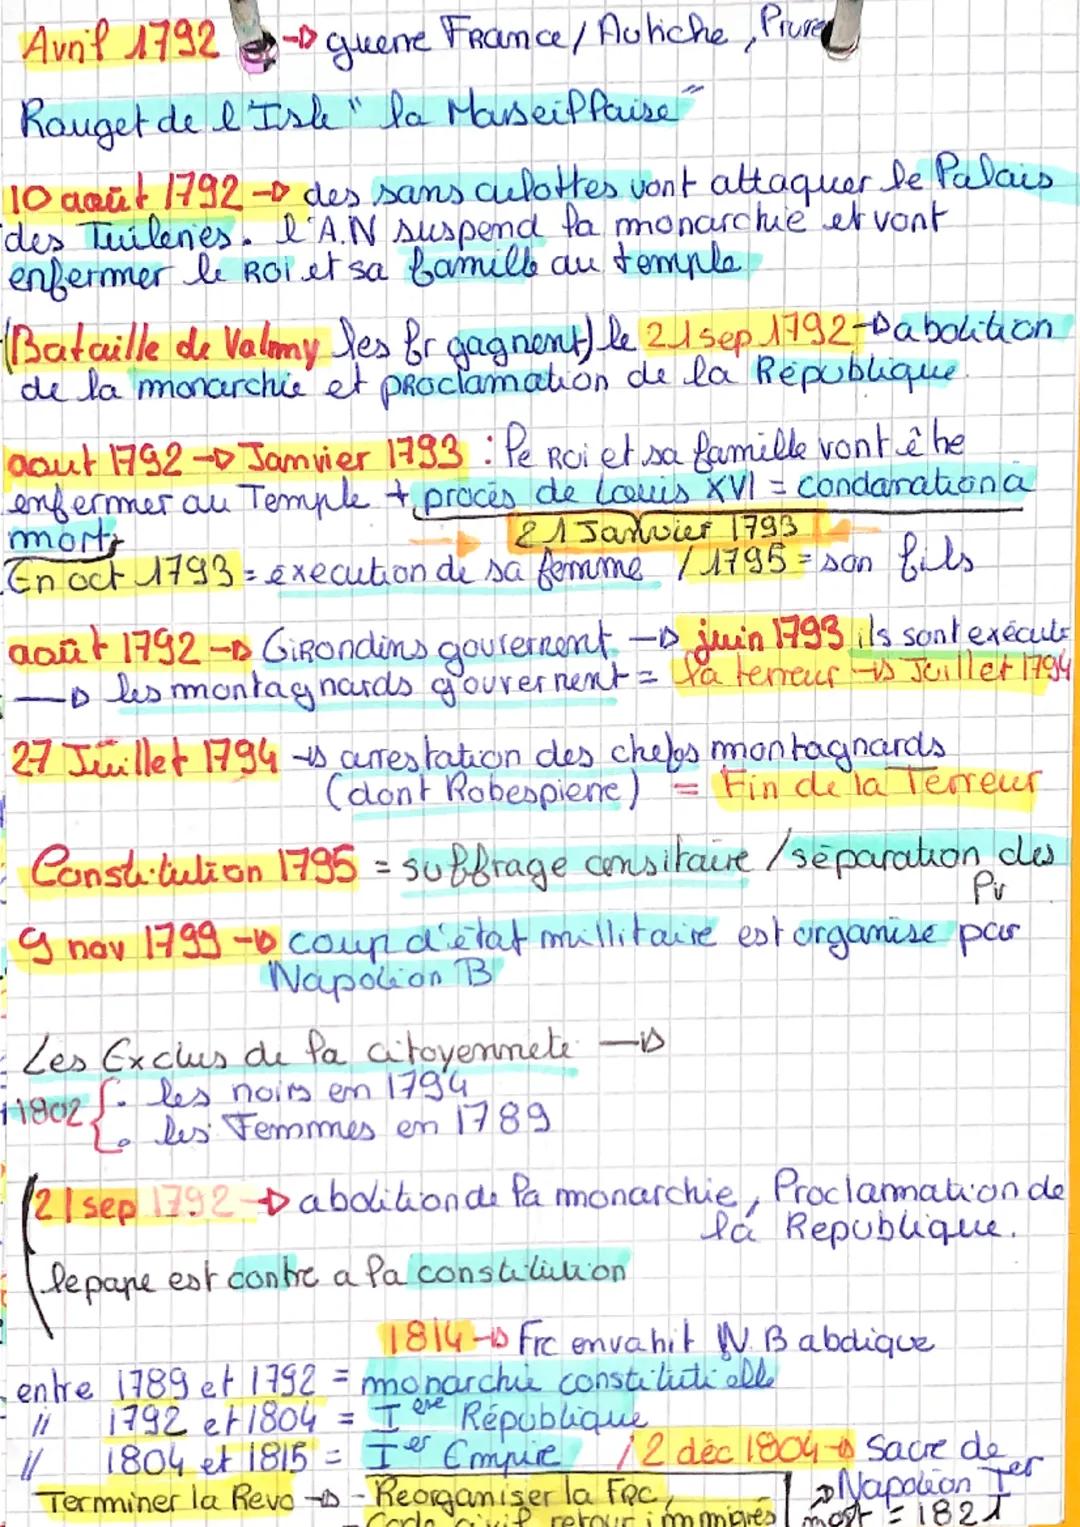 Avril 1792 → guerre France / Autiche, Prusse
Rouget de l'Isle " la Marseillaise "
10 août 1792 → des sans culottes vont attaquer le Palais
des Tuileries. l'A.N suspend la monarchie et vont
enfermer le Roi et sa famille au temple
(Bataille de Valmy les fr gagnent) le 21 sep 1792 → abolition
de la monarchie et proclamation de la République.
aout 1792 → Janvier 1793 : le Roi et sa famille vont être
enfermer au Temple + procès de Louis XVI = condanation à
mort
21 Janvier 1793
En oct 1793 = éxecution de sa femme / 1795 = son fils
août 1792 → Girondins gouvernent → juin 1793 ils sont exécuté
→ les montagnards gouvernent = la terreur → Juillet 1794
27 Juillet 1794 → arrestation des chefs montagnards
(dont Robespierre) = Fin de la Terreur
Constitution 1795 = suffrage censitaire / séparation des
Pv
9 nov 1799 → coup d'état millitaire est organise par
Napoléon B
Les Exclus de la citoyenneté →
1802 { . les noirs en 1794
. les Femmes en 1789
21 sep 1792 → abolition de la monarchie, Proclamation de
la Republique.
le pape est contre a la constitution
1814 → Frc envahit N.B abdique
entre 1789 et 1792 = monarchie constitutielle
// 1792 et 1804 = Iere République
// 1804 et 1815 = Ier Empire / 2 déc 1804 → Sacre de
Napoléon Ier
Terminer la Revo → - Reorganiser la Frc,
Code civil retour immigrés
mort = 1821